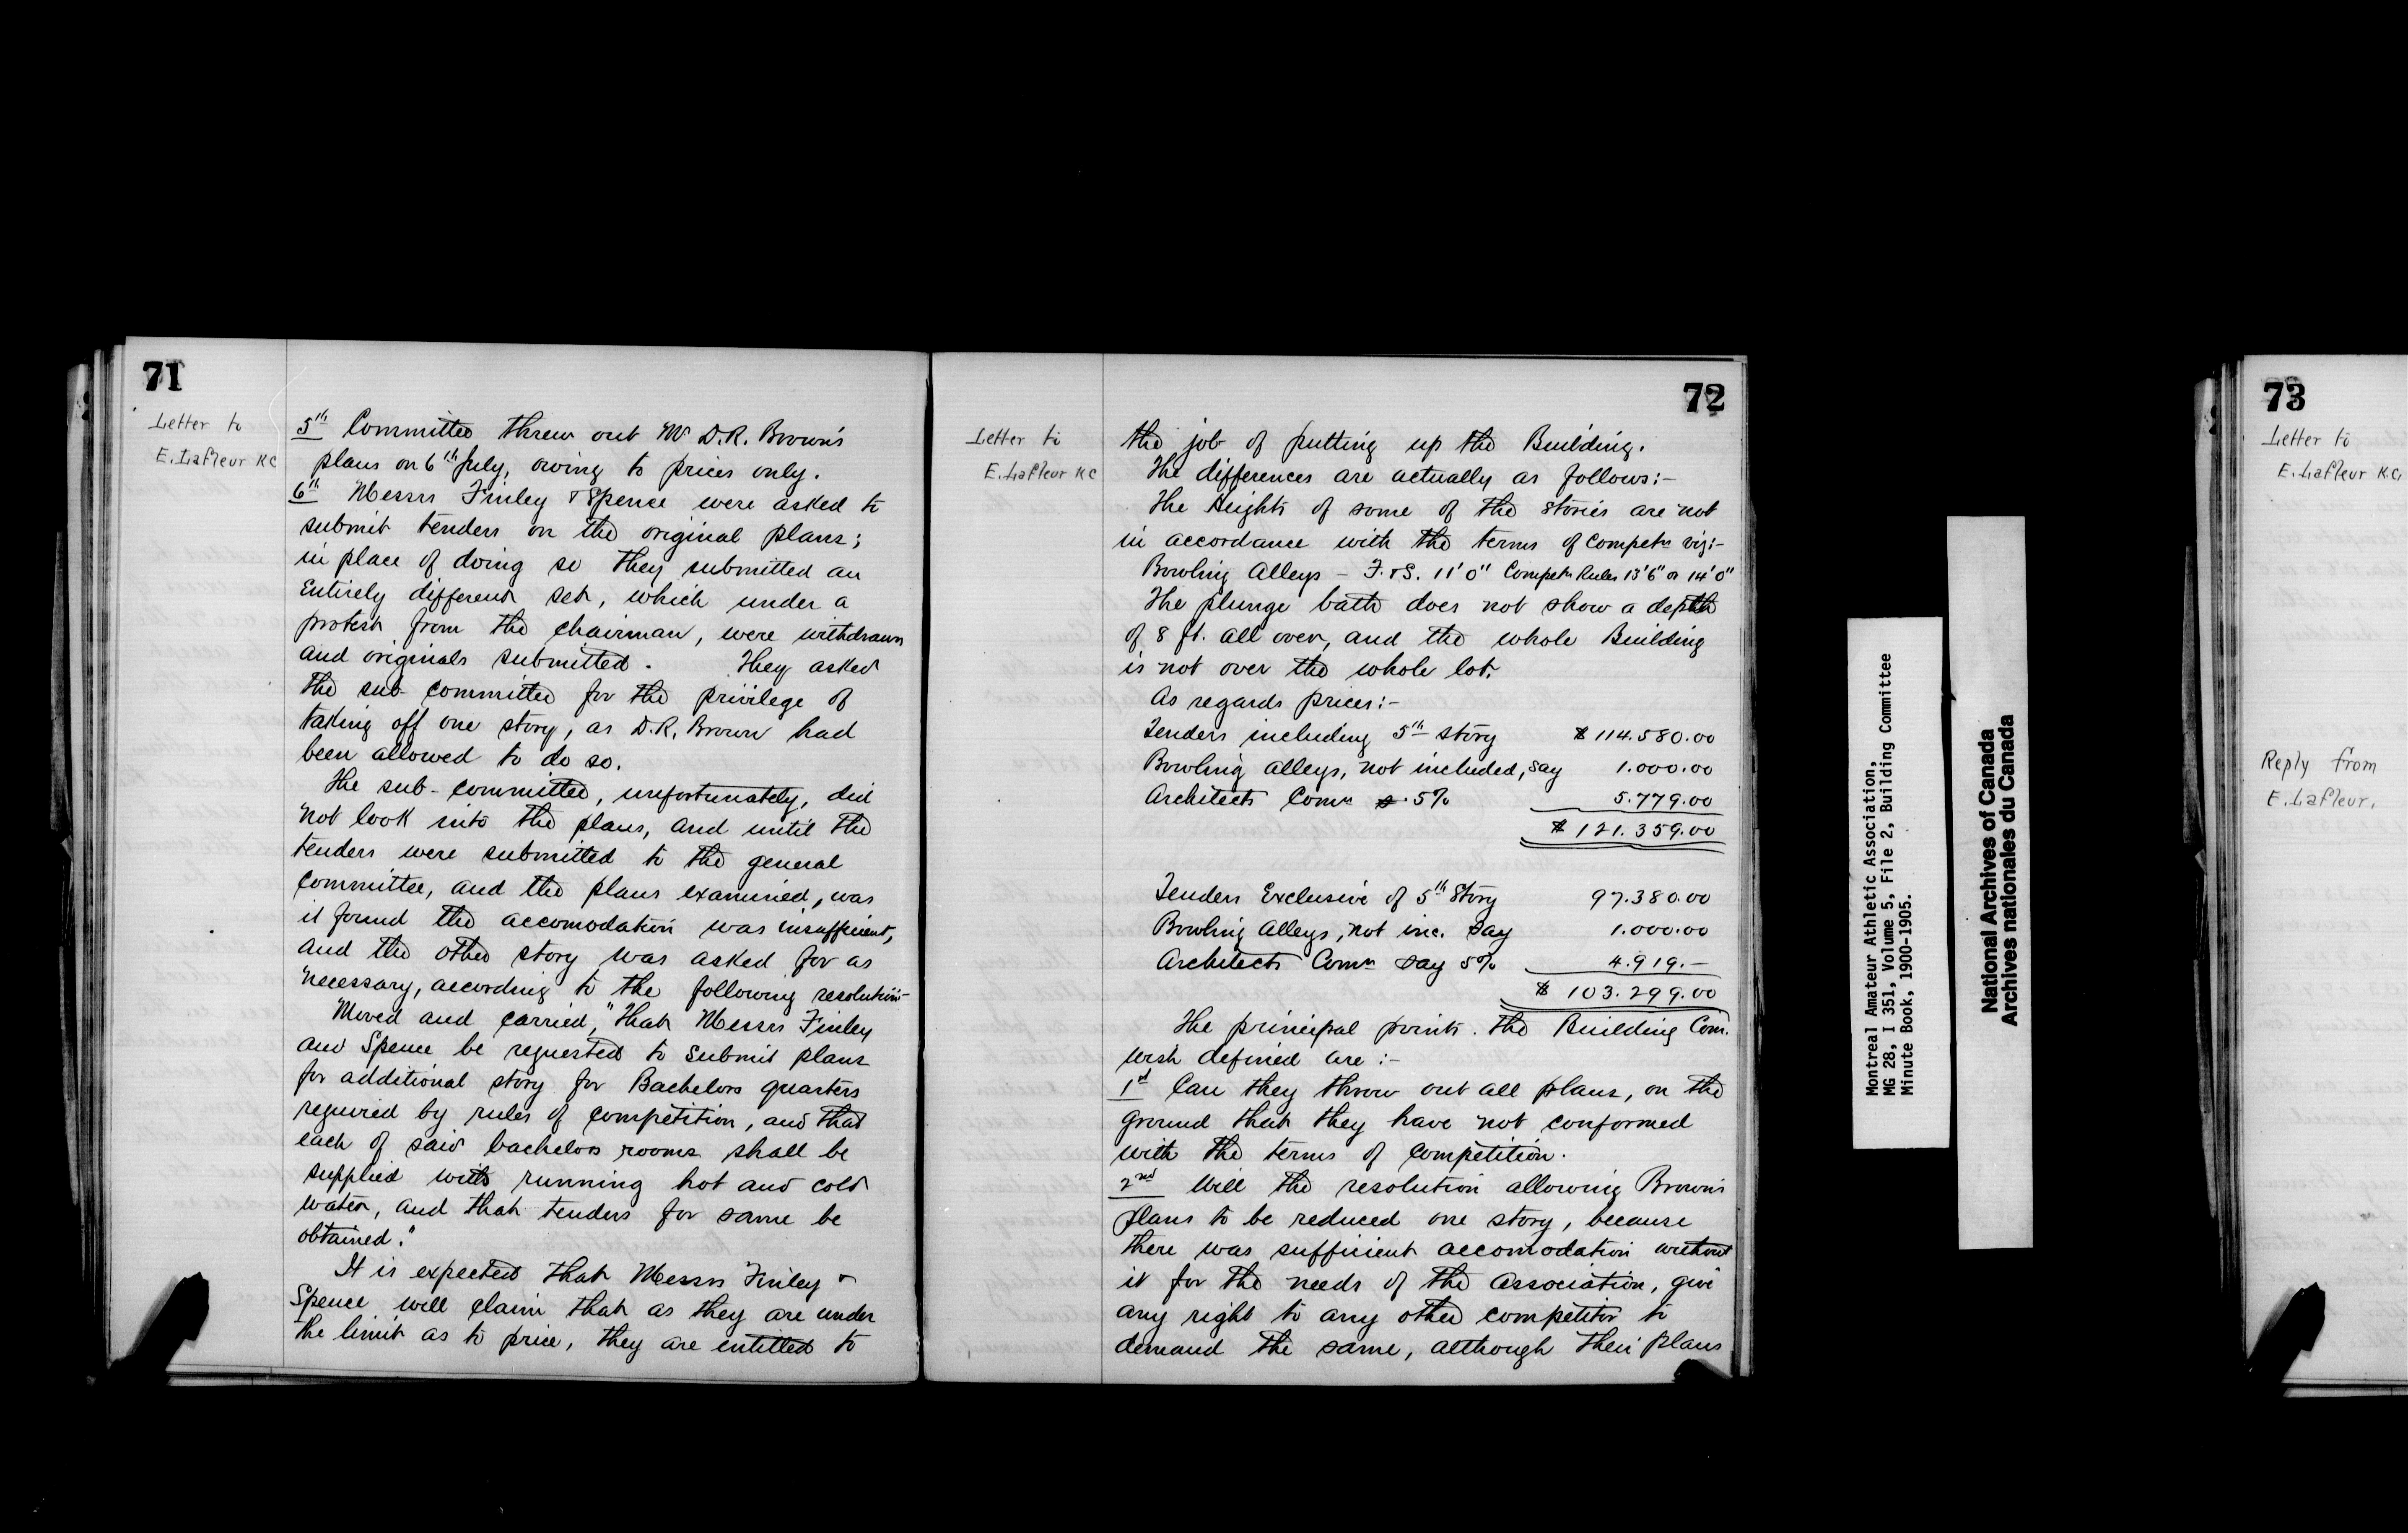 71
Letter to
E. Lafleur KC
5th Committee threw out Mr D.R. Brown's
plans on 6th July, owing to prices only.
6th Messrs Finley & Spence were asked to
submit tenders on the original plans;
in place of doing so they submitted an
entirely different set, which under a
protest from the chairman, were withdrawn
and originals submitted. They asked
the sub-committee for the privilege of
taking off one story, as D.R. Brown had
been allowed to do so.
The sub-committee, unfortunately, did
not look into the plans, and until the
tenders were submitted to the general
committee, and the plans examined, was
it found the accomodation was insufficient,
and the other story was asked for as
necessary, according to the following resolution:-
Moved and carried, "That Messrs Finley
and Spence be requested to submit plans
for additional story for Bachelors quarters
required by rules of competition, and that
each of said bachelors rooms shall be
supplied with running hot and cold
water, and that tenders for same be
obtained."
It is expected that Messrs Finley &
Spence will claim that as they are under
the limit as to price, they are entitled to
72
Letter to
E. Lafleur KC
the job of putting up the Building.
The differences are actually as follows:-
The Heights of some of the stories are not
in accordance with the terms of Competn viz:-
Bowling Alleys - F.&S. 11'0" Competn Rules 13'6" or 14'0"
The plunge bath does not show a depth
of 8 ft. all over, and the whole Building
is not over the whole lot.
As regards prices:-
Tenders including 5th story $ 114.580.00
Bowling alleys, not included, say 1.000.00
Architects Comn 5% 5.779.00
$ 121.359.00
Tenders Exclusive of 5th Story 97.380.00
Bowling Alleys, not inc. say 1.000.00
Architects Comn say 5% 4.919.-
$ 103.299.00
The principal points the Building Com.
wish defined are:-
1st Can they throw out all plans, on the
ground that they have not conformed
with the terms of competition.
2nd Will the resolution allowing Brown's
plans to be reduced one story, because
there was sufficient accomodation without
it for the needs of the Association, give
any right to any other competitor to
demand the same, although their plans
Montreal Amateur Athletic Association,
MG 28, I 351, Volume 5, File 2, Building Committee
Minute Book, 1900-1905.
National Archives of Canada
Archives nationales du Canada
73
Letter to
E. Lafleur K.C.
Reply from
E. Lafleur.